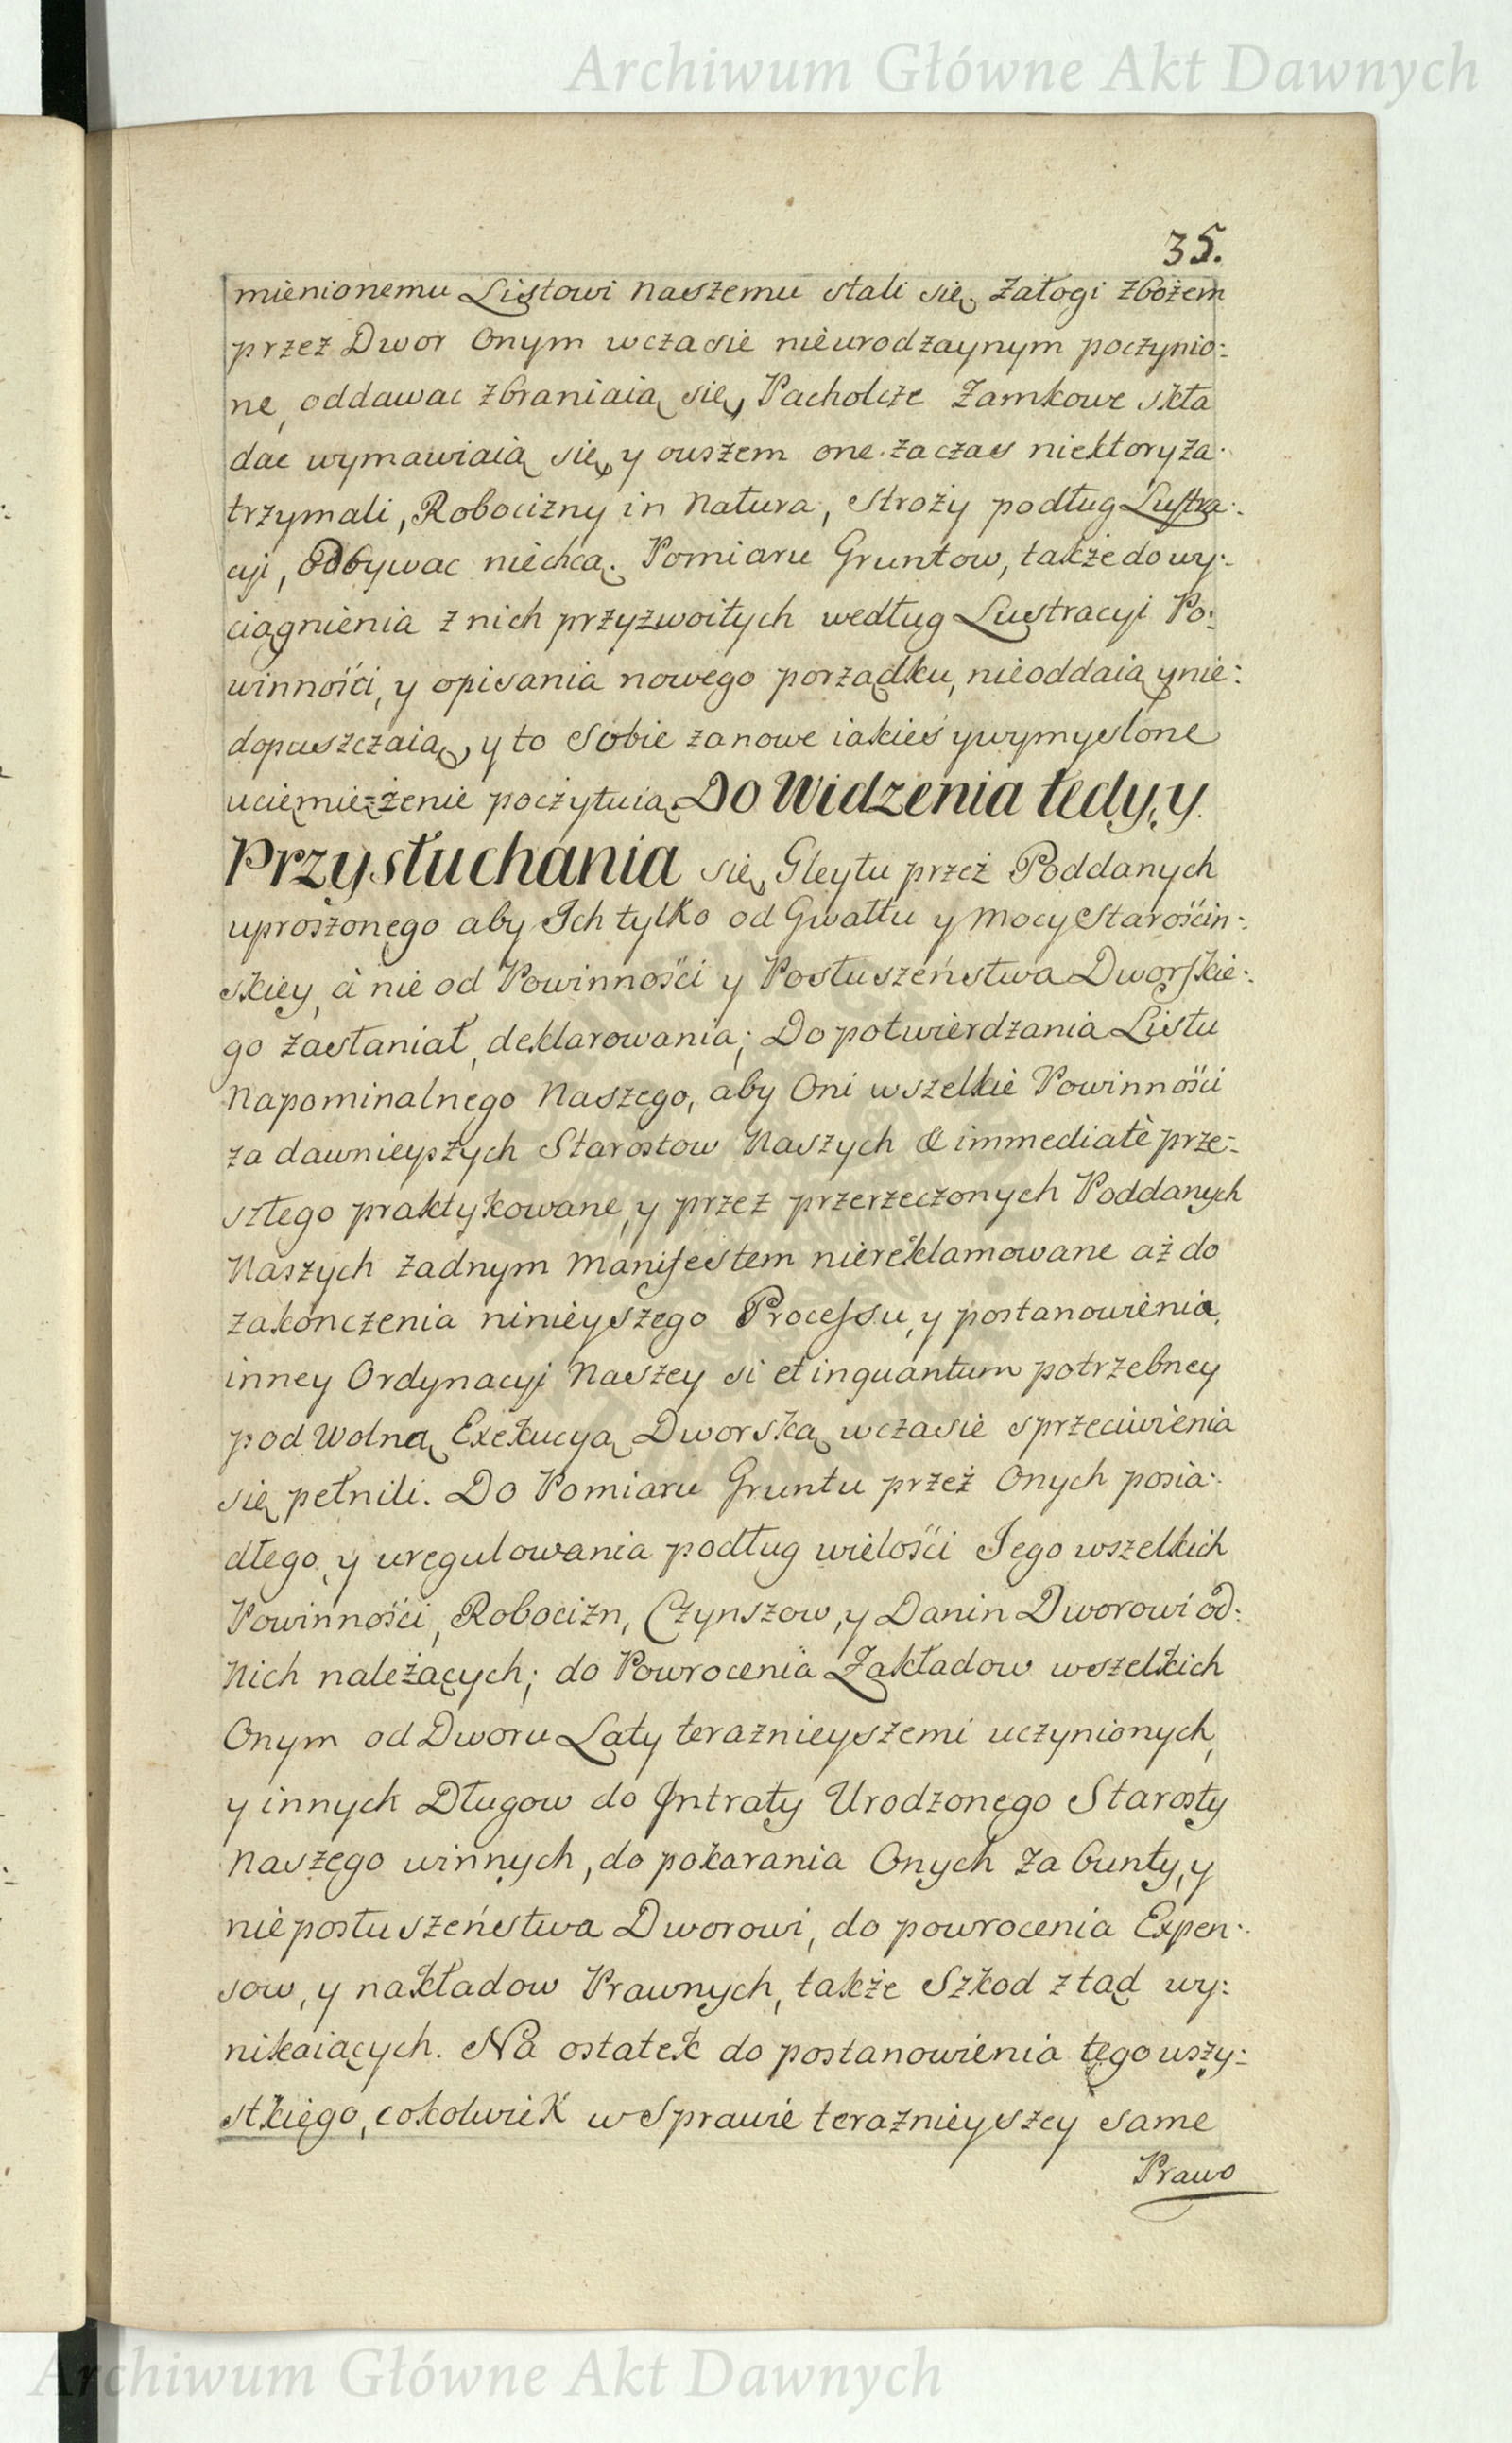 Archiwum Główne Akt Dawnych
35.
mienionemu Listowi Naszemu stali się. Załogi Zbożem
przez Dwor Onym wczasie nieurodzaynym poczynio:
ne, oddawac zbraniaią się, Pacholcze Zamkowe skła
dac wymawiaią się, y owszem one zaczas niektory za:
trzymali, Robocizny in Natura, Stroży podług Lustra:
cyi, Odbywac niechcą. Pomiaru Gruntow, także do wy:
ciągnienia z nich przyzwoitych według Lustracyi Po:
winności, y opisania nowego porządku, nieoddaią y nie:
dopuszczaią, y to Sobie zanowe iakieś y wymyslone
uciemiężenie poczytuią. Do Widzenia tedy, y
Przysłuchania się, Gleytu przez Poddanych
uproszonego aby Ich tylko od Gwałtu y Mocy Starościn:
skiey, à nie od Powinności y Posłuszeństwa Dworskie:
go zasłaniał, deklarowania; Do potwierdzania Listu
Napominalnego Naszego, aby Oni wszelkie Powinności
za dawnieyszych Starostow Naszych & immediatè prze:
szłego praktykowane, y przez przerzeczonych Poddanych
Naszych żadnym Manifestem niereklamowane aż do
zakonczenia ninieyszego Processu, y postanowienia,
inney Ordynacyi Naszey si et inquantum potrzebney
pod Wolną Exekucyą Dworską wczasie sprzeciwienia
się pełnili. Do Pomiaru Gruntu przez Onych posia:
dłego, y uregulowania podług wielości Jego wszelkich
Powinności, Robocizn, Czynszow, y Danin Dworowi od:
Nich należących; do Powrocenia Zakładow wszelkich
Onym od Dworu Laty teraznieyszemi uczynionych,
y innych Długow do Intraty Urodzonego Starosty
Naszego winnych, do pokarania Onych za bunty, y
nieposłuszeństwa Dworowi, do powrocenia Expen:
sow, y nakładow Prawnych, także Szkod ztąd wy:
nikaiących. Na ostatek do postanowienia tego wszy:
stkiego, cokolwiek w Sprawie teraznieyszey same
Prawo
Archiwum Główne Akt Dawnych